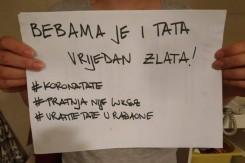 BEBAMA JE I TATA
VRIJEDAN ZLATA!
#KORONATATE
#PRATNJA NIJE LUKSUZ
#VRATITE TATE U RAĐAONE